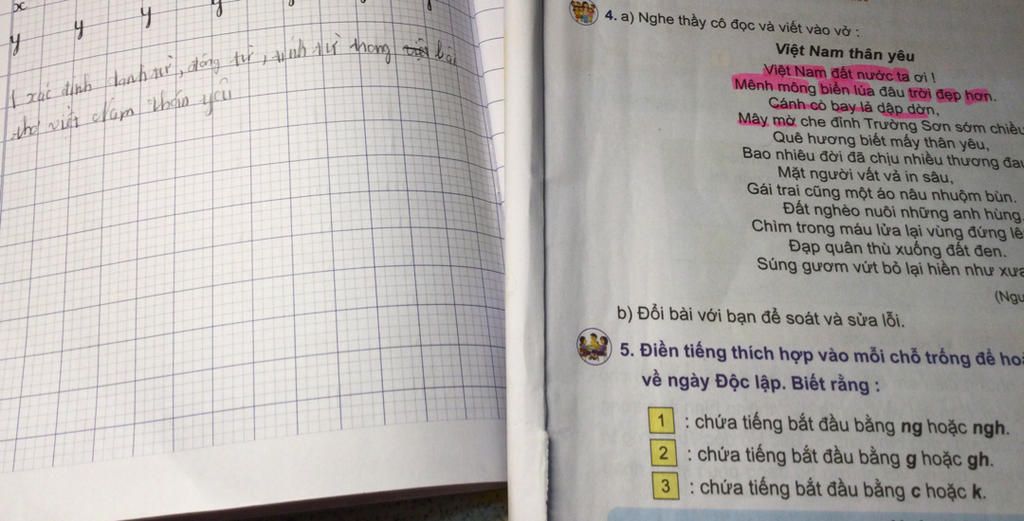 x
y y y y
1 xác định danh từ, động từ, tính từ trong bài
thơ việt Nam thân yêu
4. a) Nghe thầy cô đọc và viết vào vở :
Việt Nam thân yêu
Việt Nam đất nước ta ơi !
Mênh mông biển lúa đâu trời đẹp hơn.
Cánh cò bay lả dập dờn,
Mây mờ che đỉnh Trường Sơn sớm chiều
Quê hương biết mấy thân yêu,
Bao nhiêu đời đã chịu nhiều thương đau
Mặt người vất vả in sâu,
Gái trai cũng một áo nâu nhuộm bùn.
Đất nghèo nuôi những anh hùng
Chìm trong máu lửa lại vùng đứng lê
Đạp quân thù xuống đất đen.
Súng gươm vứt bỏ lại hiền như xưa
(Ngu
b) Đổi bài với bạn để soát và sửa lỗi.
5. Điền tiếng thích hợp vào mỗi chỗ trống để hoà
về ngày Độc lập. Biết rằng :
1 : chứa tiếng bắt đầu bằng ng hoặc ngh.
2 : chứa tiếng bắt đầu bằng g hoặc gh.
3 : chứa tiếng bắt đầu bằng c hoặc k.